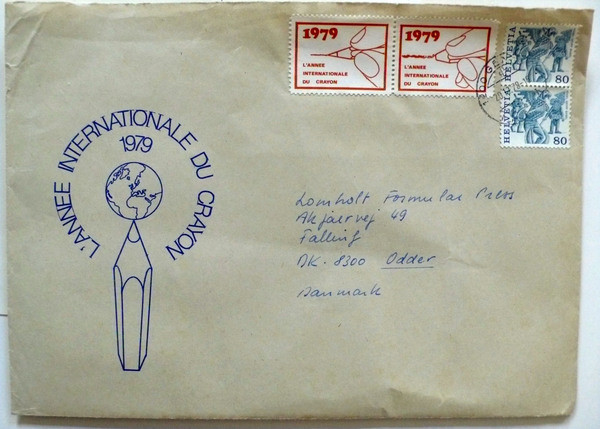 1979
L'ANNEE
INTERNATIONALE
DU CRAYON
1979
L'ANNEE
INTERNATIONALE
DU CRAYON
HELVETIA
80
HELVETIA
80
L'ANNEE INTERNATIONALE DU CRAYON
1979
Lomholt Formular Press
Akjaervej 49
Falling
DK-8300 Odder
Danmark